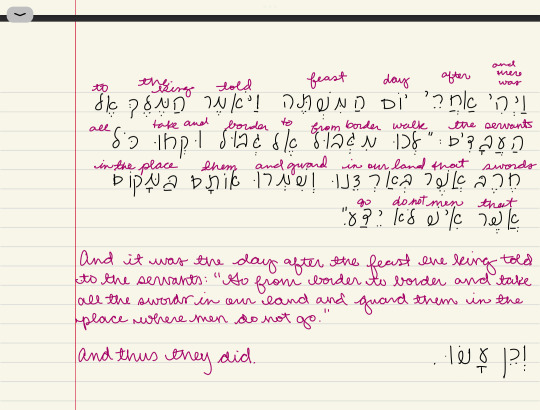 to the king told feast day after and there was
וַיְהִי אַחֲרֵי יוֹם הַמִּשְׁתֶּה וַיֹּאמֶר הַמֶּלֶךְ אֶל
all take and border to from border walk the servants
הָעֲבָדִים: "לְכוּ מִגְּבוּל אֶל גְּבוּל וּקְחוּ כׇּל
in the place them and guard in our land that swords
חֶרֶב אֲשֶׁר בְּאַרְצֵנוּ וְשִׁמְרוּ אוֹתָם בַּמָּקוֹם
go do not men that
אֲשֶׁר אִישׁ לֹא יֵדַע".
And it was the day after the feast the king told
to the servants: "Go from border to border and take
all the swords in our land and guard them in the
place where men do not go."
And thus they did.
וְכֵן עָשׂוּ.